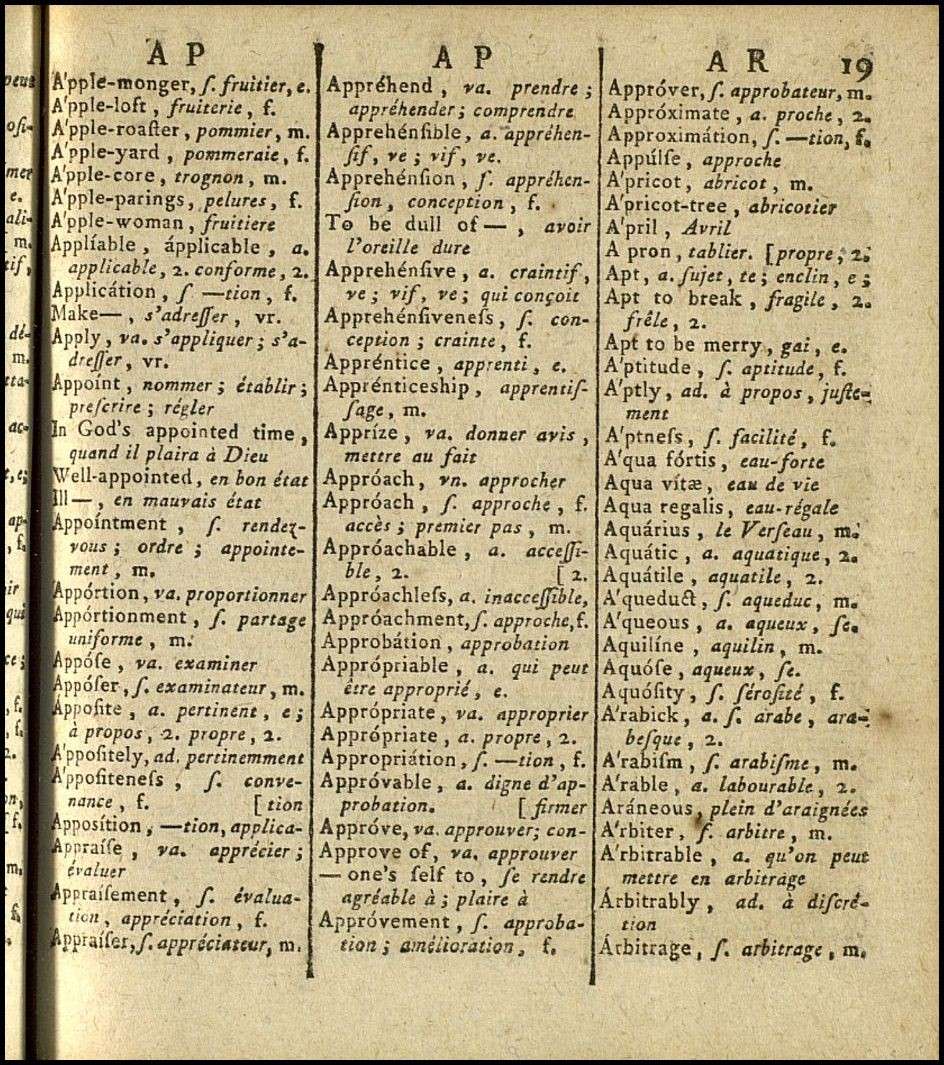 AP
A'pple-monger, ſ. fruitier, e.
A'pple-loft, fruiterie, f.
A'pple-roaſter, pommier, m.
A'pple-yard, pommeraie, f.
A'pple-core, trognon, m.
A'pple-parings, pelures, f.
A'pple-woman, fruitiere
Applíable, ápplicable, a.
applicable, 2. conforme, 2.
Applicátion, ſ —tion, f.
Make—, s'adreſſer, vr.
Apply, va. s'appliquer; s'a-
dreſſer, vr.
Appoínt, nommer; établir;
preſcrire; régler
In God's appointed time,
quand il plaira à Dieu
Well-appointed, en bon état
Ill—, en mauvais état
Appoíntment, ſ. rendez-
vous; ordre; appointe-
ment, m.
Appórtion, va. proportionner
Appórtionment, ſ. partage
uniforme, m.
Appóſe, va. examiner
Appóſer, ſ. examinateur, m.
Appoſite, a. pertinent, e;
à propos, 2. propre, 2.
A'ppoſitely, ad. pertinemment
A'ppoſiteneſs, ſ. conve-
nance, f. [tion
Appoſítion, —tion, applica-
Appraiſe, va. apprécier;
évaluer
Appraiſement, ſ. évalua-
tion, appréciation, f.
Appraiſer, ſ. appréciateur, m.
AP
Appréhend, va. prendre;
appréhender; comprendre
Apprehénſible, a. appréhen-
ſif, ve; vif, ve.
Apprehénſion, ſ. appréhen-
ſion, conception, f.
To be dull of—, avoir
l'oreille dure
Apprehénſive, a. craintif,
ve; vif, ve; qui conçoit
Apprehénſiveneſs, ſ. con-
ception; crainte, f.
Appréntice, apprenti, e.
Apprénticeship, apprentiſ-
ſage, m.
Appríze, va. donner avis,
mettre au fait
Appróach, vn. approcher
Appróach, ſ. approche, f.
accès; premier pas, m.
Appróachable, a. acceſſi-
ble, 2. [2.
Appróachleſs, a. inacceſſible,
Appróachment, ſ. approche, f.
Approbátion, approbation
Apprópriable, a. qui peut
être approprié, e.
Apprópriate, va. approprier
Apprópriate, a. propre, 2.
Appropriátion, ſ. —tion, f.
Appróvable, a. digne d'ap-
probation. [firmer
Appróve, va. approuver; con-
Approve of, va. approuver
— one's ſelf to, ſe rendre
agréable à; plaire à
Appróvement, ſ. approba-
tion; amélioration, f.
AR 19
Appróver, ſ. approbateur, m.
Appróximate, a. proche, 2.
Approximátion, ſ. —tion, f.
Appúlſe, approche
A'pricot, abricot, m.
A'pricot-tree, abricotier
A'pril, Avril
A pron, tablier. [propre, 2.
Apt, a. ſujet, te; enclin, e;
Apt to break, fragile, 2.
frêle, 2.
Apt to be merry, gai, e.
A'ptitude, ſ. aptitude, f.
A'ptly, ad. à propos, juſte-
ment
A'ptneſs, ſ. facilité, f.
A'qua fórtis, eau-forte
Aqua vítæ, eau de vie
Aqua regalis, eau-régale
Aquárius, le Verſeau, m.
Aquátic, a. aquatique, 2.
Aquátile, aquatile, 2.
A'queduct, ſ. aqueduc, m.
A'queous, a. aqueux, ſe.
Aquilíne, aquilin, m.
Aquóſe, aqueux, ſe.
Aquóſity, ſ. ſéroſité, f.
A'rabick, a. ſ. arabe, ara-
beſque, 2.
A'rabiſm, ſ. arabiſme, m.
A'rable, a. labourable, 2.
Aráneous, plein d'araignées
A'rbiter, ſ. arbitre, m.
A'rbitrable, a. qu'on peut
mettre en arbitrage
Árbitrably, ad. à diſcré-
tion
Árbitrage, ſ. arbitrage, m.